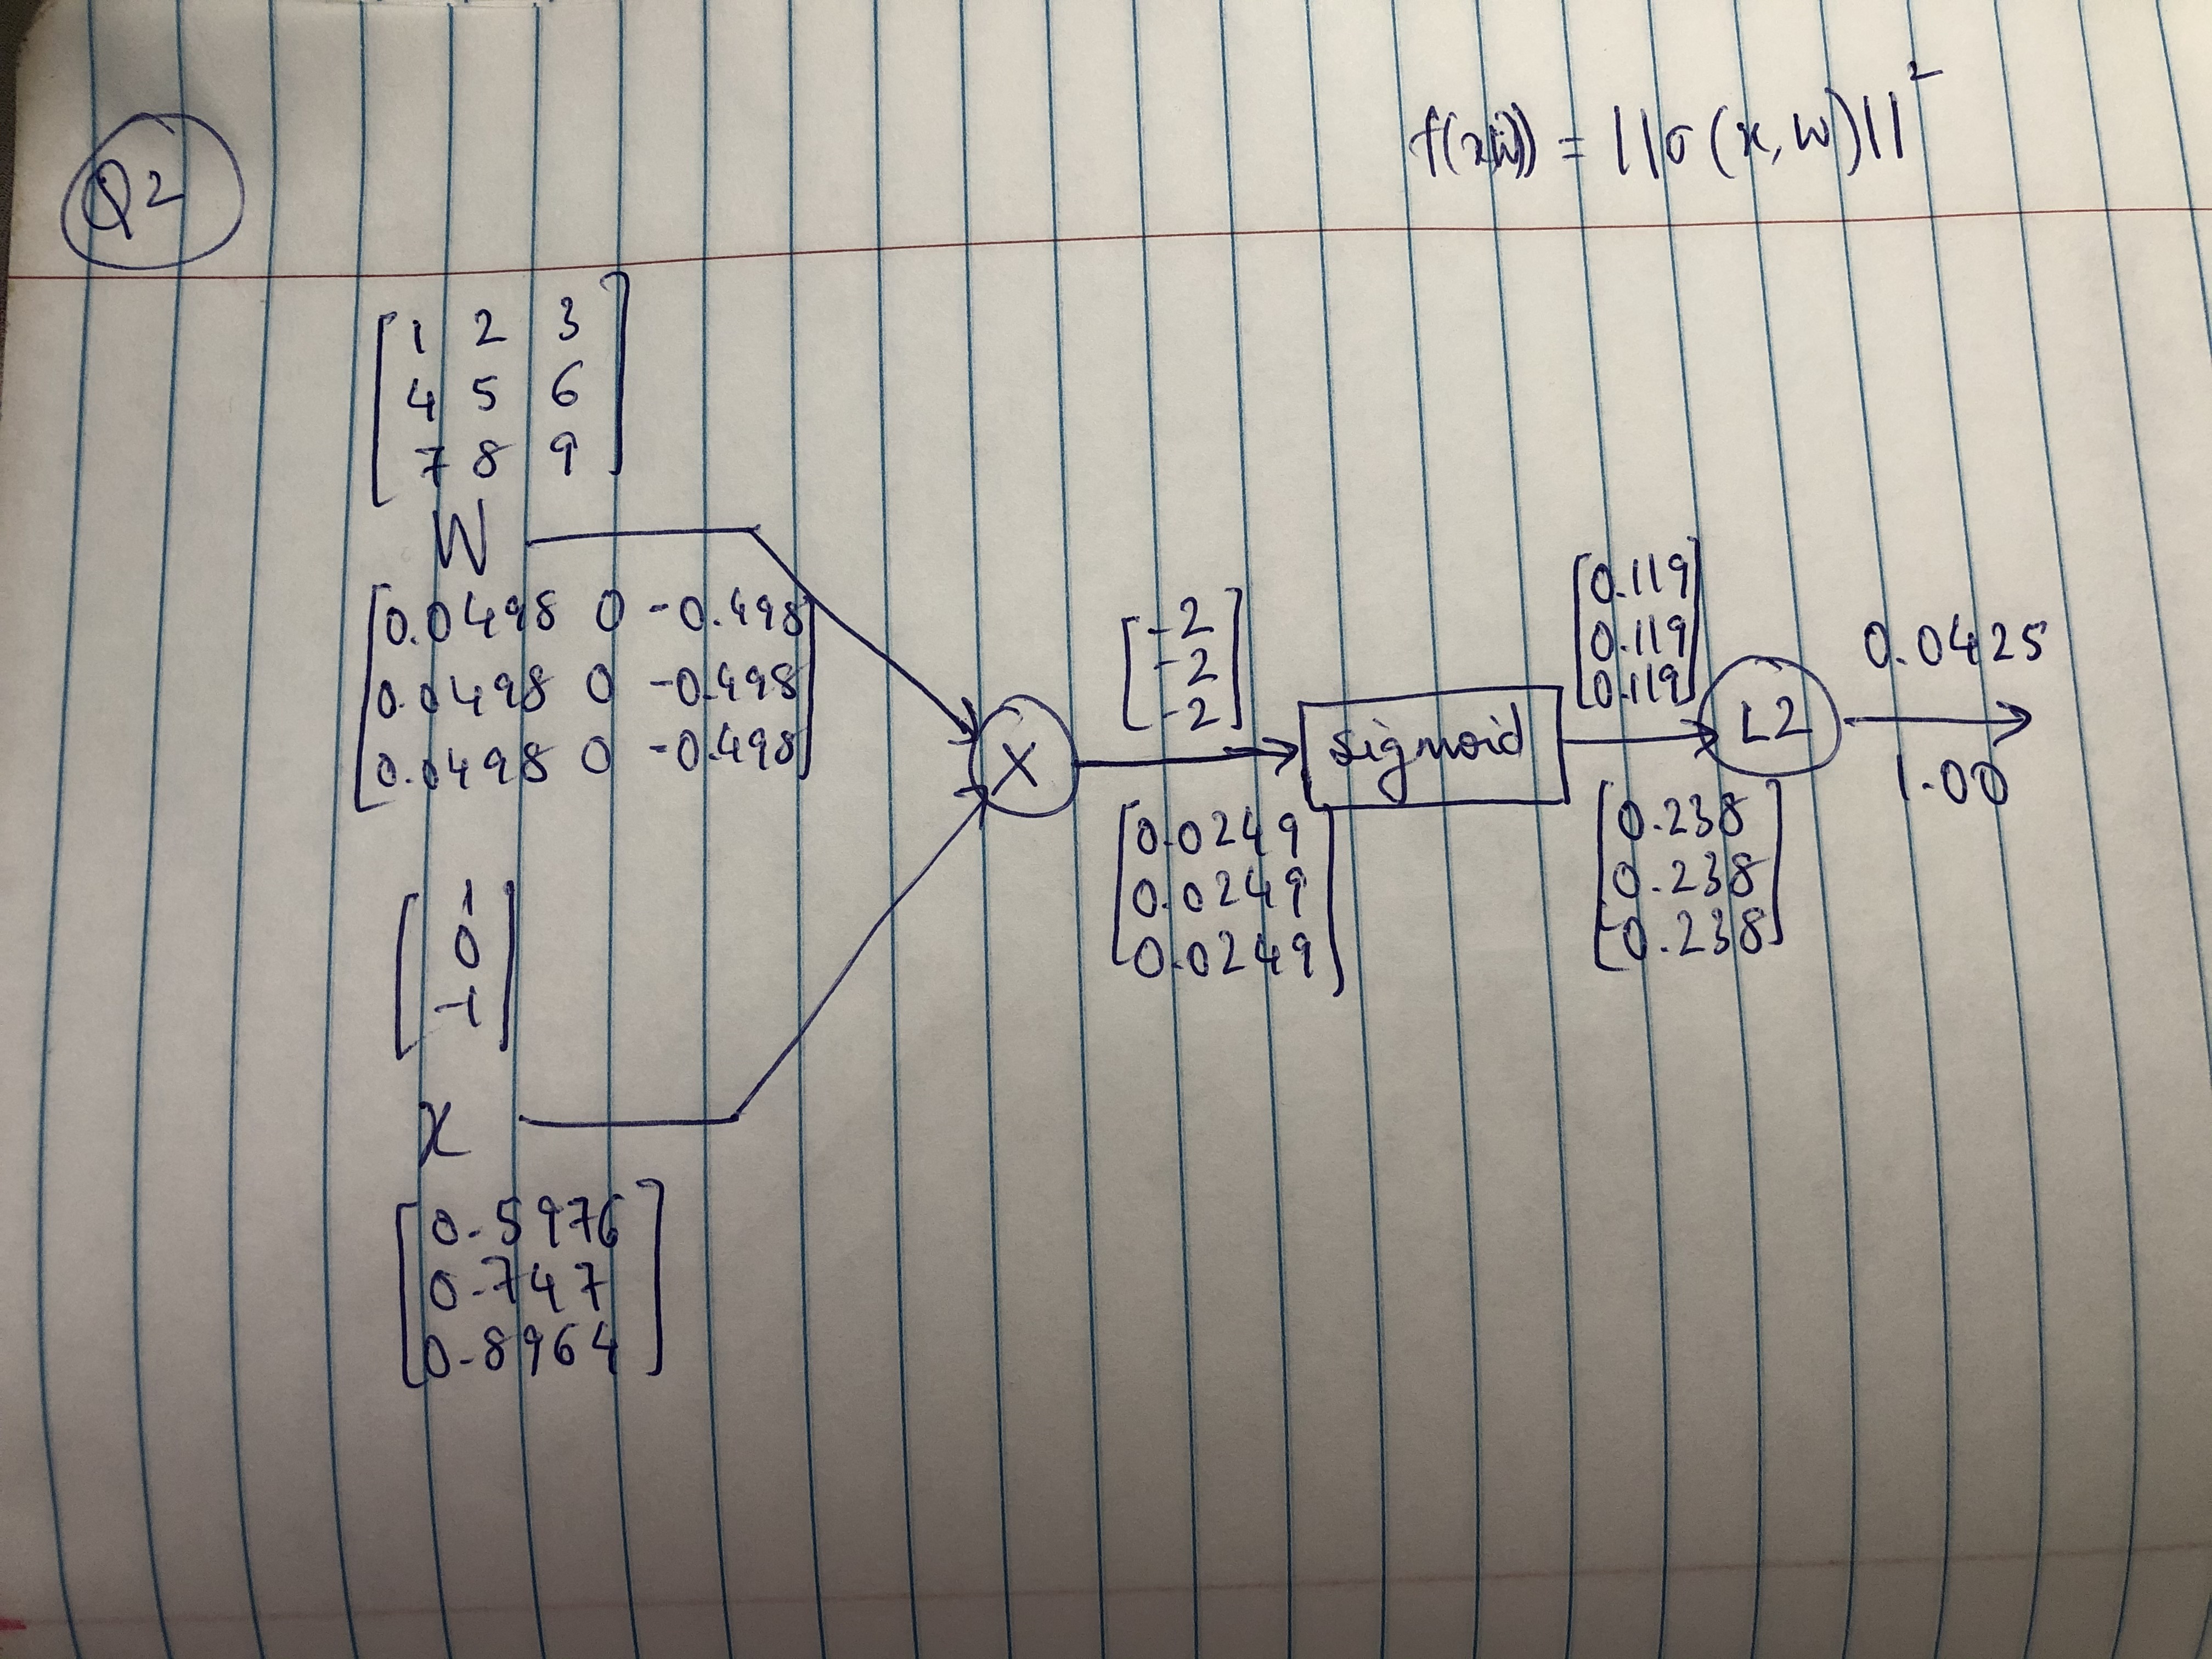 Q2
f(x,W) = ||σ(x, W)||²
[1 2 3
4 5 6
7 8 9]
W
[0.0498 0 -0.498
0.0498 0 -0.498
0.0498 0 -0.498]
[1
0
-1]
x
[0.5976
0.747
0.8964]
X
[-2
-2
-2]
[0.0249
0.0249
0.0249]
sigmoid
[0.119
0.119
0.119]
[0.238
0.238
0.238]
L2
0.0425
1.00